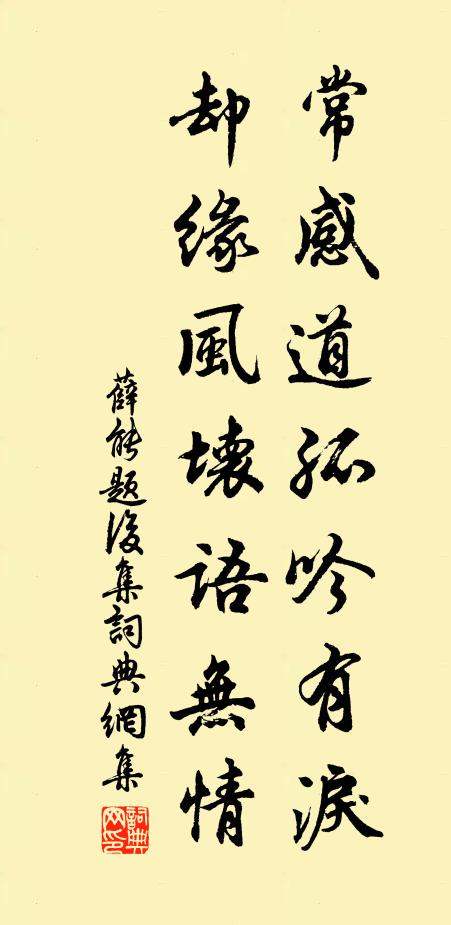 常感道孤吟有淚
却緣風壞語無情
薛能題後集詞典網集
詞典网印